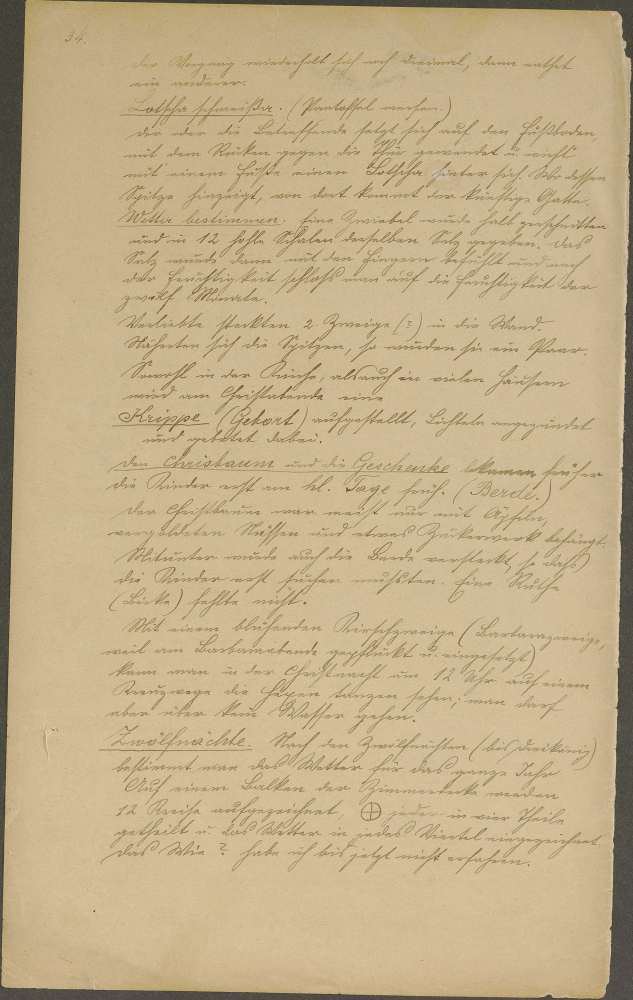 34.
Der Vorgang wiederholt sich noch dreimal, dann rathet
ein anderer.
Lotscha schmeißa. (Pantoffel werfen.)
Der oder die Betreffende setzt sich auf den Fußboden,
mit dem Rücken gegen die Thür gewendet u. wirft
mit einem Fuße einen Lotscha hinter sich. Wo dessen
Spitze hinzeigt, von dort kommt der künftige Gatte.
Wetter bestimmen. Eine Zwiebel wurde halb zerschnitten
und in 12 hohle Schalen derselben Salz gegeben. Das
Salz wurde dann mit den Fingern befühlt und nach
der Feuchtigkeit schloß man auf die Feuchtigkeit der
zwölf Monate.
Verliebte steckten 2 Zweige (?) in die Wand.
Näherten sich die Spitzen, so wurden sie ein Paar.
Sowohl in der Kirche, als auch in vielen Häusern
wird am Christabende eine
Krippe (Gebort) aufgestellt, Lichteln angezündet
und gebetet dabei.
Den Chrisbaum und die Geschenke bekamen früher
die Kinder erst am hl. Tage früh. (Berde.)
Der Christbaum war meist nur mit Äpfeln,
vergoldeten Nüssen und etwas Zukerwerk behängt.
Mitunter wurde auch die Berde versteckt, so daß
die Kinder erst suchen mußten. Eine Ruthe
(Bicke) fehlte nicht.
Mit einem blühenden Kirschzweige (Barbarazweige,
weil am Barbaraabende gepflückt u. eingesetzt)
kann man in der Christnacht um 12 Uhr auf einem
Kreuzwege die Hexen tanzen sehen; man darf
aber über kein Wasser gehen.
Zwölfnächte. Nach den Zwölfnächten (bis Dreikönig)
bestimmt man das Wetter für das ganze Jahr
Auf einem Balken der Zimmerdecke werden
12 Kreise aufgezeichnet, jeder in vier Theile
getheilt u. das Wetter in jedes Viertel eingezeichnet.
Das Wie? habe ich bis jetzt nicht erfahren.